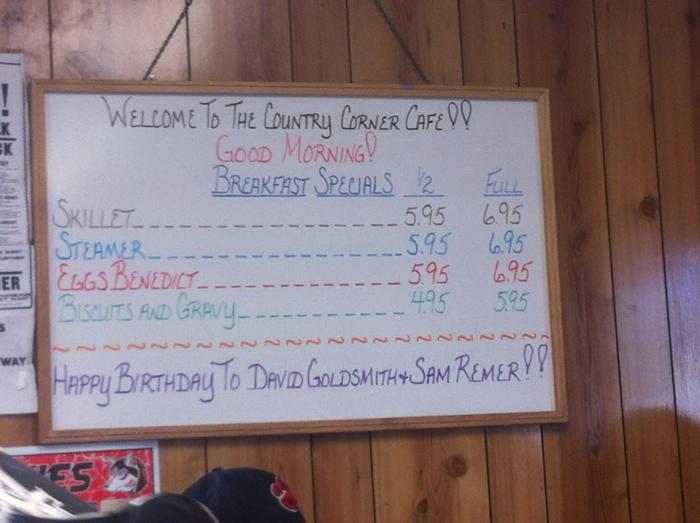 WELCOME TO THE COUNTRY CORNER CAFE!!
GOOD MORNING!
BREAKFAST SPECIALS 1/2 FULL
SKILLET 5.95 6.95
STEAMER 5.95 6.95
EGGS BENEDICT 5.95 6.95
BISCUITS AND GRAVY 4.95 5.95
HAPPY BIRTHDAY TO DAVID GOLDSMITH + SAM REMER!!
ER
WAY
IES